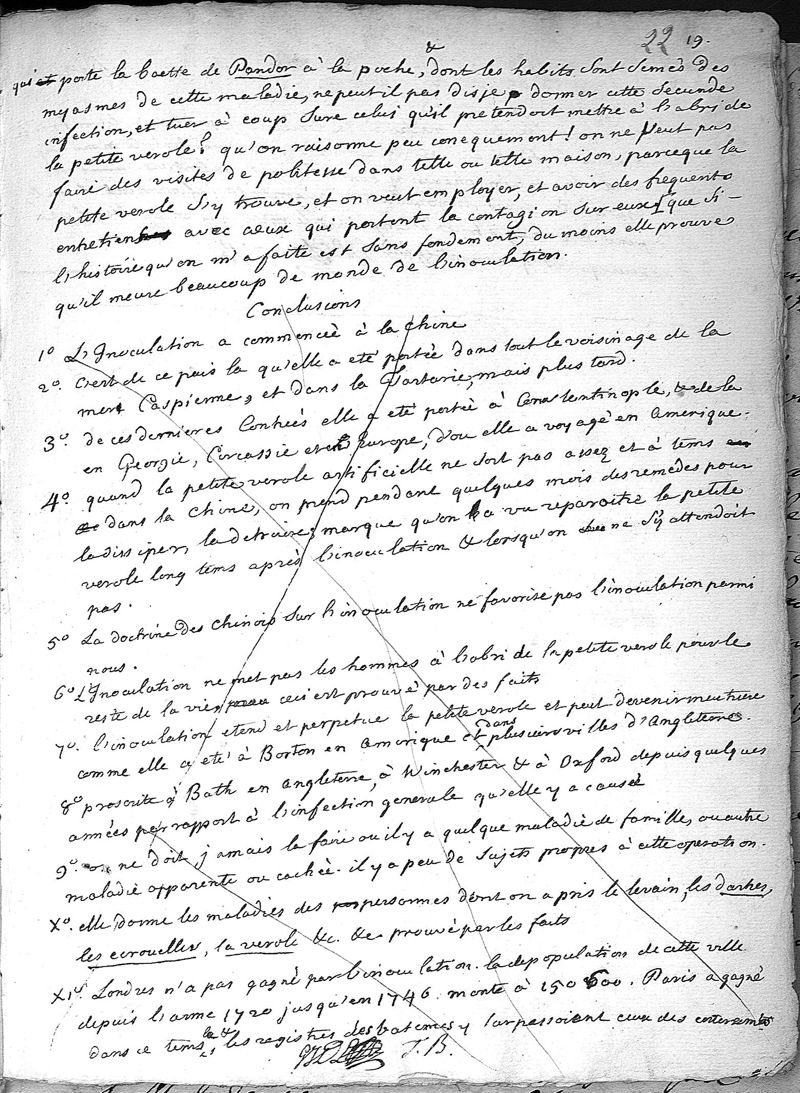 22 19.
qui porte la boette de Pandor à la poche, & dont les habits sont semés des
myasmes de cette maladie, ne peut il pas disje donner cette seconde
infection, et tuer à coup sure celui qu'il pretendoit mettre à l'abri de
la petite verole? qu'on raisonne peu consequemment! on ne peut pas
faire des visites de politesse dans telle ou telle maison, parceque la
petite verole s'y trouve, et on veut employer, et avoir des frequents
entretiens avec ceux qui portent la contagion sur eux! que si
l'histoire qu'on m'a faite est sans fondement, du moins elle prouve
qu'il meure beaucoup de monde de l'inoculation.
Conclusions
1º L'Inoculation a commencée à la Chine
2º. c'est de ce païs la qu'elle a eté portée dans tout le voisinage de la
mer Caspienne, et dans la Tartarie, mais plus tard.
3º. de ces dernieres Contrées elle a eté portée à Constantinople, & de la
en Georgie, Circassie et en Europe, d'ou elle a voyagé en Amerique.
4º quand la petite verole artificielle ne sort pas assez et à tems
dans la Chine, on prend pendant quelques mois des remedes pour
la dissiper, la detruire; marque qu'on a vu reparoitre la petite
verole long tems après l'inoculation & lorsqu'on ne s'y attendoit
pas.
5º La doctrine des Chinois sur l'inoculation ne favorise pas l'inoculation parmi
nous.
6º L'Inoculation ne met pas les hommes à l'abri de la petite verole pour le
reste de la vie, ceci est prouvé par des faits
7º. l'inoculation etend et perpetue la petite verole et peut devenir meurtriere
comme elle a eté à Boston en Amerique et dans plusieurs villes d'Angleterre.
8º proscrite à Bath en Angleterre, à Winchester & à Oxford depuis quelques
années par rapport à l'infection generale qu'elle y a causée
9º. on ne doit jamais la faire ou il y a quelque maladie de famille, ou autre
maladie apparente ou cachée. il y a peu de sujets propres à cette operation.
Xº. elle donne les maladies des personnes dont on a pris le levain, les dartres,
les ecrouelles, la verole &c. &c prouvé par les faits
XIº. Londres n'a pas gagné par l'inoculation. la depopulation de cette ville
depuis l'anne 1720 jusqu'en 1746. monte à 150 600. Paris a gagné
dans ce tems & les registres des batemes y surpassoient ceux des enterremts
J. B.